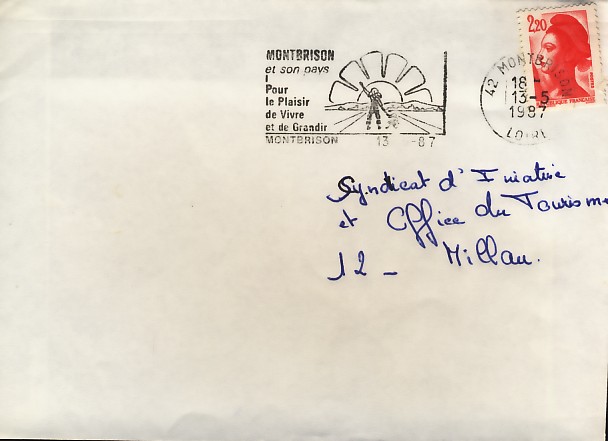 MONTBRISON
et son pays
Pour
le Plaisir
de Vivre
et de Grandir
MONTBRISON 13 -87
2,20
42 MONTBRISON
18 -
13-5
1987
LOIRE
Syndicat d'Iniative
et Office du Tourisme
12 _ Millau.